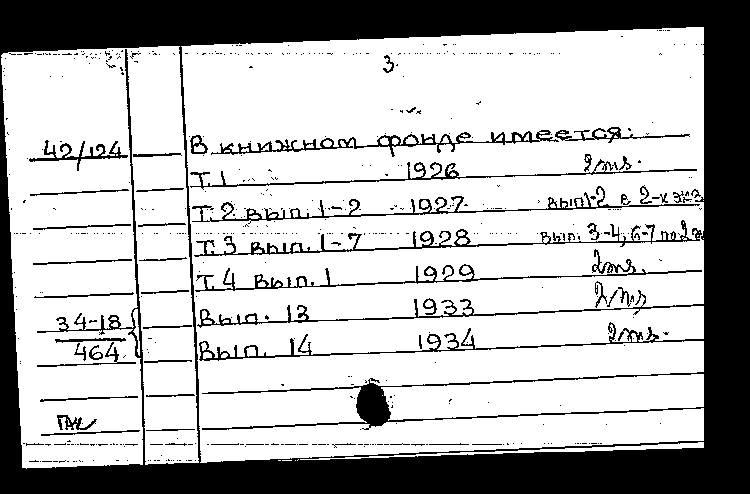 3
42/124 В книжном фонде имеется:
Т. 1 1926 2 экз.
Т. 2 вып. 1-2 1927 вып. 1-2 в 2-х экз
Т. 3 вып. 1-7 1928 вып. 3-4, 6-7 по 2 э
Т. 4 вып. 1 1929 2 экз.
34-18 Вып. 13 1933 2 экз
464 Вып. 14 1934 2 экз.